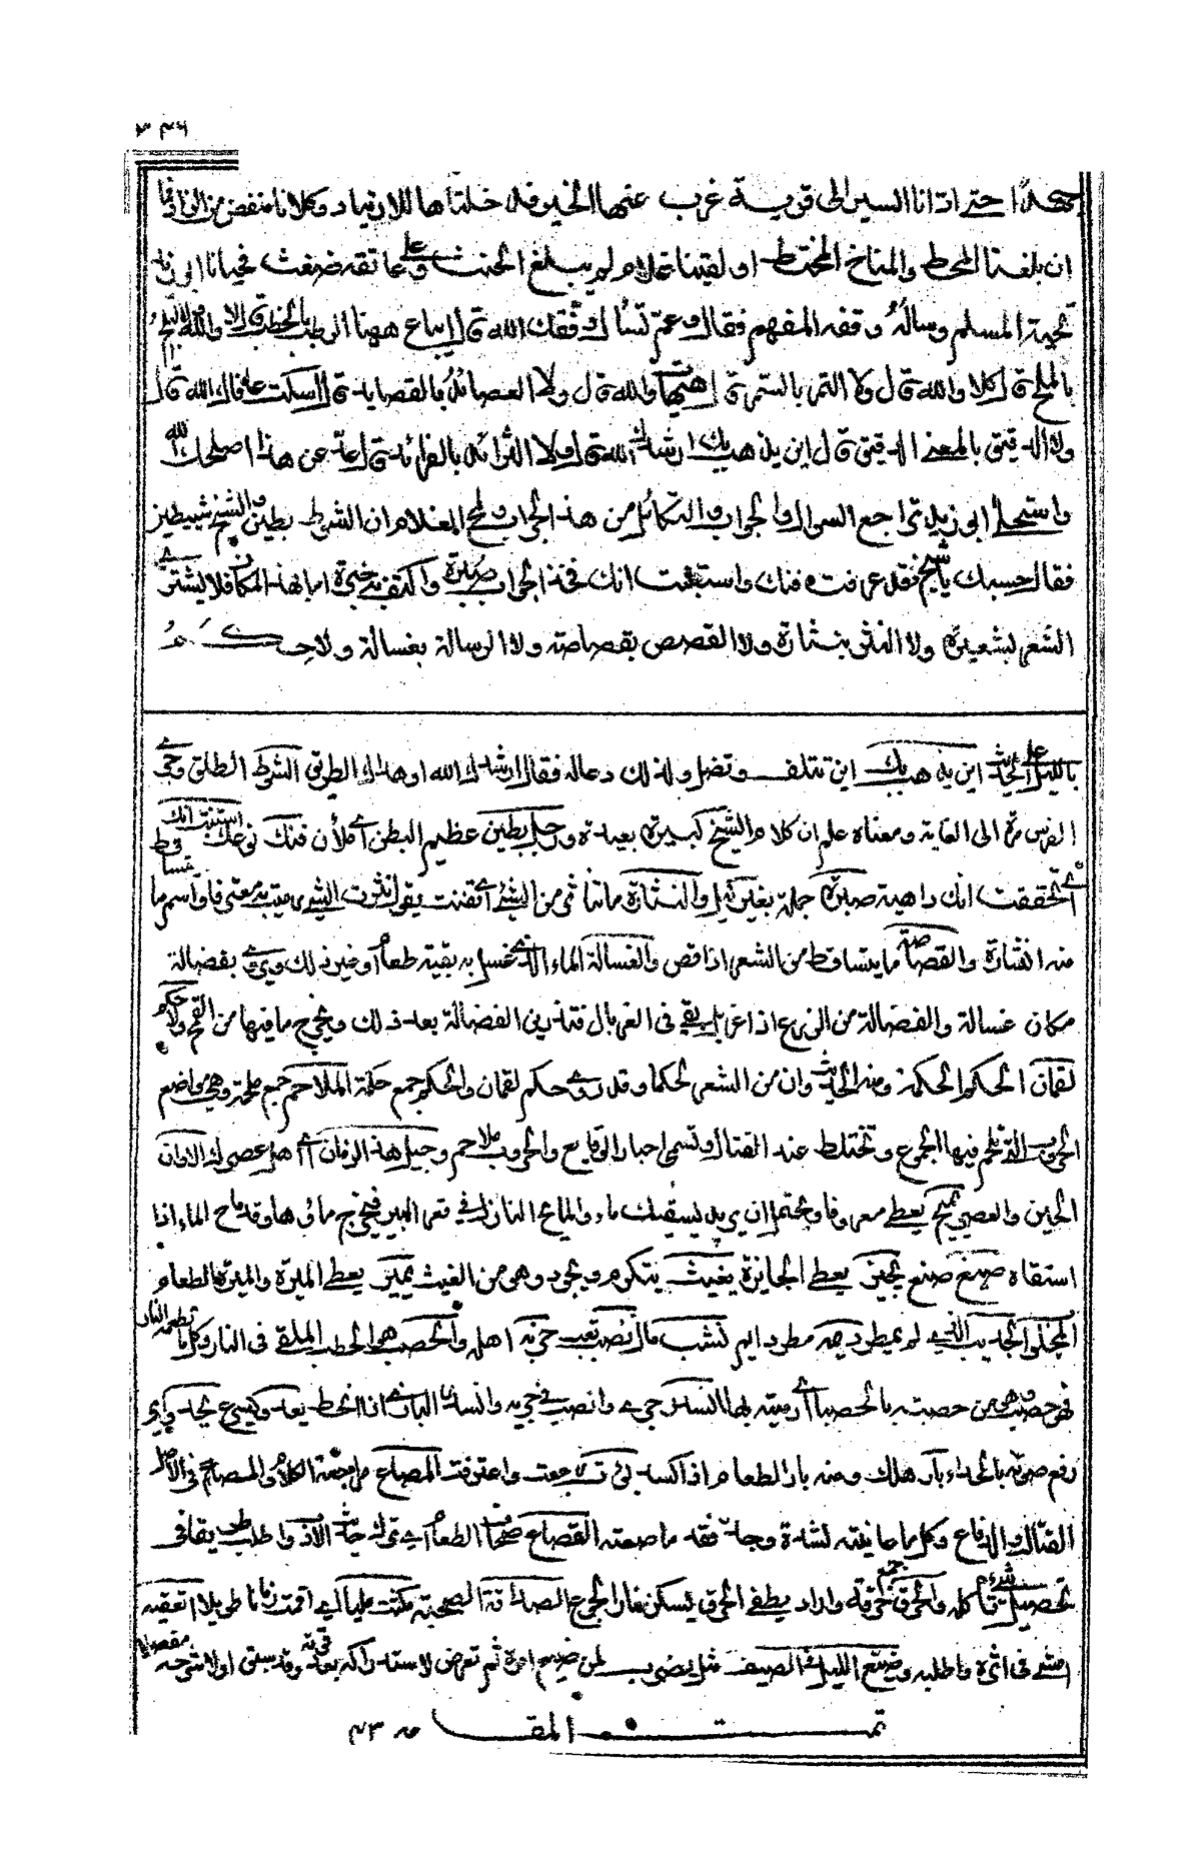 ٣٤٦
جهدا حتى ادانا السير الى قرية غرب عنها الخير فدخلناها للارتياد وكلانا منفض من الزاد فما
ان بلغنا المحط والمناخ المختط او لقينا غلام لم يبلغ الحنث وعلى عاتقه ضغث فحيانا ابو زيد
تحية المسلم وساله وقفه المفهم فقال وعم تسأل وفقك الله قال ايباع ههنا الرطب بالخطب قال لا والله قال ولا البلح
بالملح قال كلا والله قال ولا التمر بالسمر قال هيهات والله قال ولا العصائد بالقصايد قال اسكت عافاك الله قال
ولا الدقيق بالمعنى الدقيق قال اين يذهب بك ارشدك الله قال ولا الثرائد بالفرائد قال عد عن هذا اصلحك الله
واستحلى ابو زيد تراجع السوال والجواب والتكائل من هذا الجراب ولمح الغلام ان الشوط بطين والشيخ شييطين
فقال حسبك يا شيخ فقد عرفت فنك واستبنت انك فخذ الجواب صبرة واكتف به خبرة اما بهذا المكان فلا يشترى
الشعر بشعيرة ولا النثر بنثارة ولا القصص بقصاصة ولا الرسالة بغسالة ولا حكم
اين يذهب بك اين تتلف وتضل وذلك دعا له فقال ارشدك الله او هداك الطريق الشوط الطلق وجرى
الفرس مرة الى الغاية ومعناه علم ان كلام الشيخ كبيرة بعيدة ورجل بطين عظيم البطن اى ملأن فنك نوعك استبنت انك
اى تحققت انك داهية صبرة جملة بغير كيل والنثارة ما تناثر من الشئ
منه النثارة والقصاصة ما يتساقط من الشعر اذا قص والغسالة الماء الذى غسل به بقية طعام او غير ذلك وروى بفضالة
مكان غسالة والفضالة من الزرع اذا غربل يبقى فى الغربال فتذرى الفضالة بعد ذلك ويخرج ما فيها من القمح ولا حكم
لقمان الحكم الحكمة ومنه الحديث وان من الشعر لحكما وقد روى حكم لقمان والحكم جمع حكمة الملاحم جمع ملحمة وهى مواضع
الحروب التى تلتحم فيها الجموع وتختلط عند القتال وتسمى اخبار الوقايع والحروب ملاحم وجيل هذا الزمان اى اهل عصره الاوان
الحين والعصر يميح يعطى معروفا ويحتمل ان يريد يسقيك ماء والمايح النازل فى قعر البير فيخرج ماؤها وقد ماح الماء اذا
استقاه صيغ صنع يجيز يعطى الجايزة يغيث يتكرم ويجود وهى من الغيث يمير يعطى الميرة والميرة الطعام
المجلوب الجديب الذى لم يمطر ديمة مطر دايم نشب مال نصب تعب حزبه اهله والحصب هو الحطب الملقى فى النار وكل ما تطعمه النار
فهو حصب وهى من حصبته بالحصباء اى رميته بها انسلا جرى وانصب فى جريه وانسلا البازى اذا انحط يعد وكيسرع
رفع صوته بالحداء بار هلك ومنه بار الطعام اذا كسد لئن راجعت واعترفت المصاع مراجعة الكلام والمصاع فى الاصل
القتال والدفاع وكل ما عانيته لشدة وجد فقد ماصعته القصاع صحاف الطعام
تحصيل شئ تأكله والحرق جمع حرقة واراد يطفى الحرق يسكن نار الجوع الصداقة الصحبة مكثت مليا اى اقمت زمانا طويلا اتعقبه
امشى فى اثره واطلبه وضيع اللبن فى الصيف مثل يضرب لمن ضيع امره ثم تعرض لاستدراكه بعد فوته وقد سبق اولا شرحه مفصلا
تمت المقا مه ٤٣